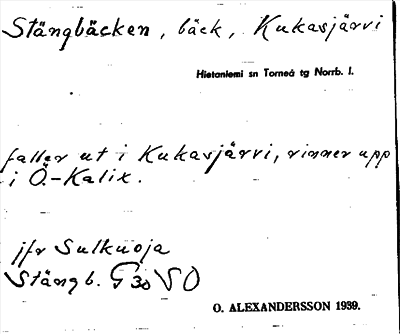 Stängbäcken, bäck, Kukasjärvi
Hietaniemi sn Torneå tg Norrb. l.
faller ut i Kukasjärvi, rinner upp
i Ö.-Kalix.
jfr Sulkuoja
Stängb. G 30 SO
O. ALEXANDERSSON 1939.